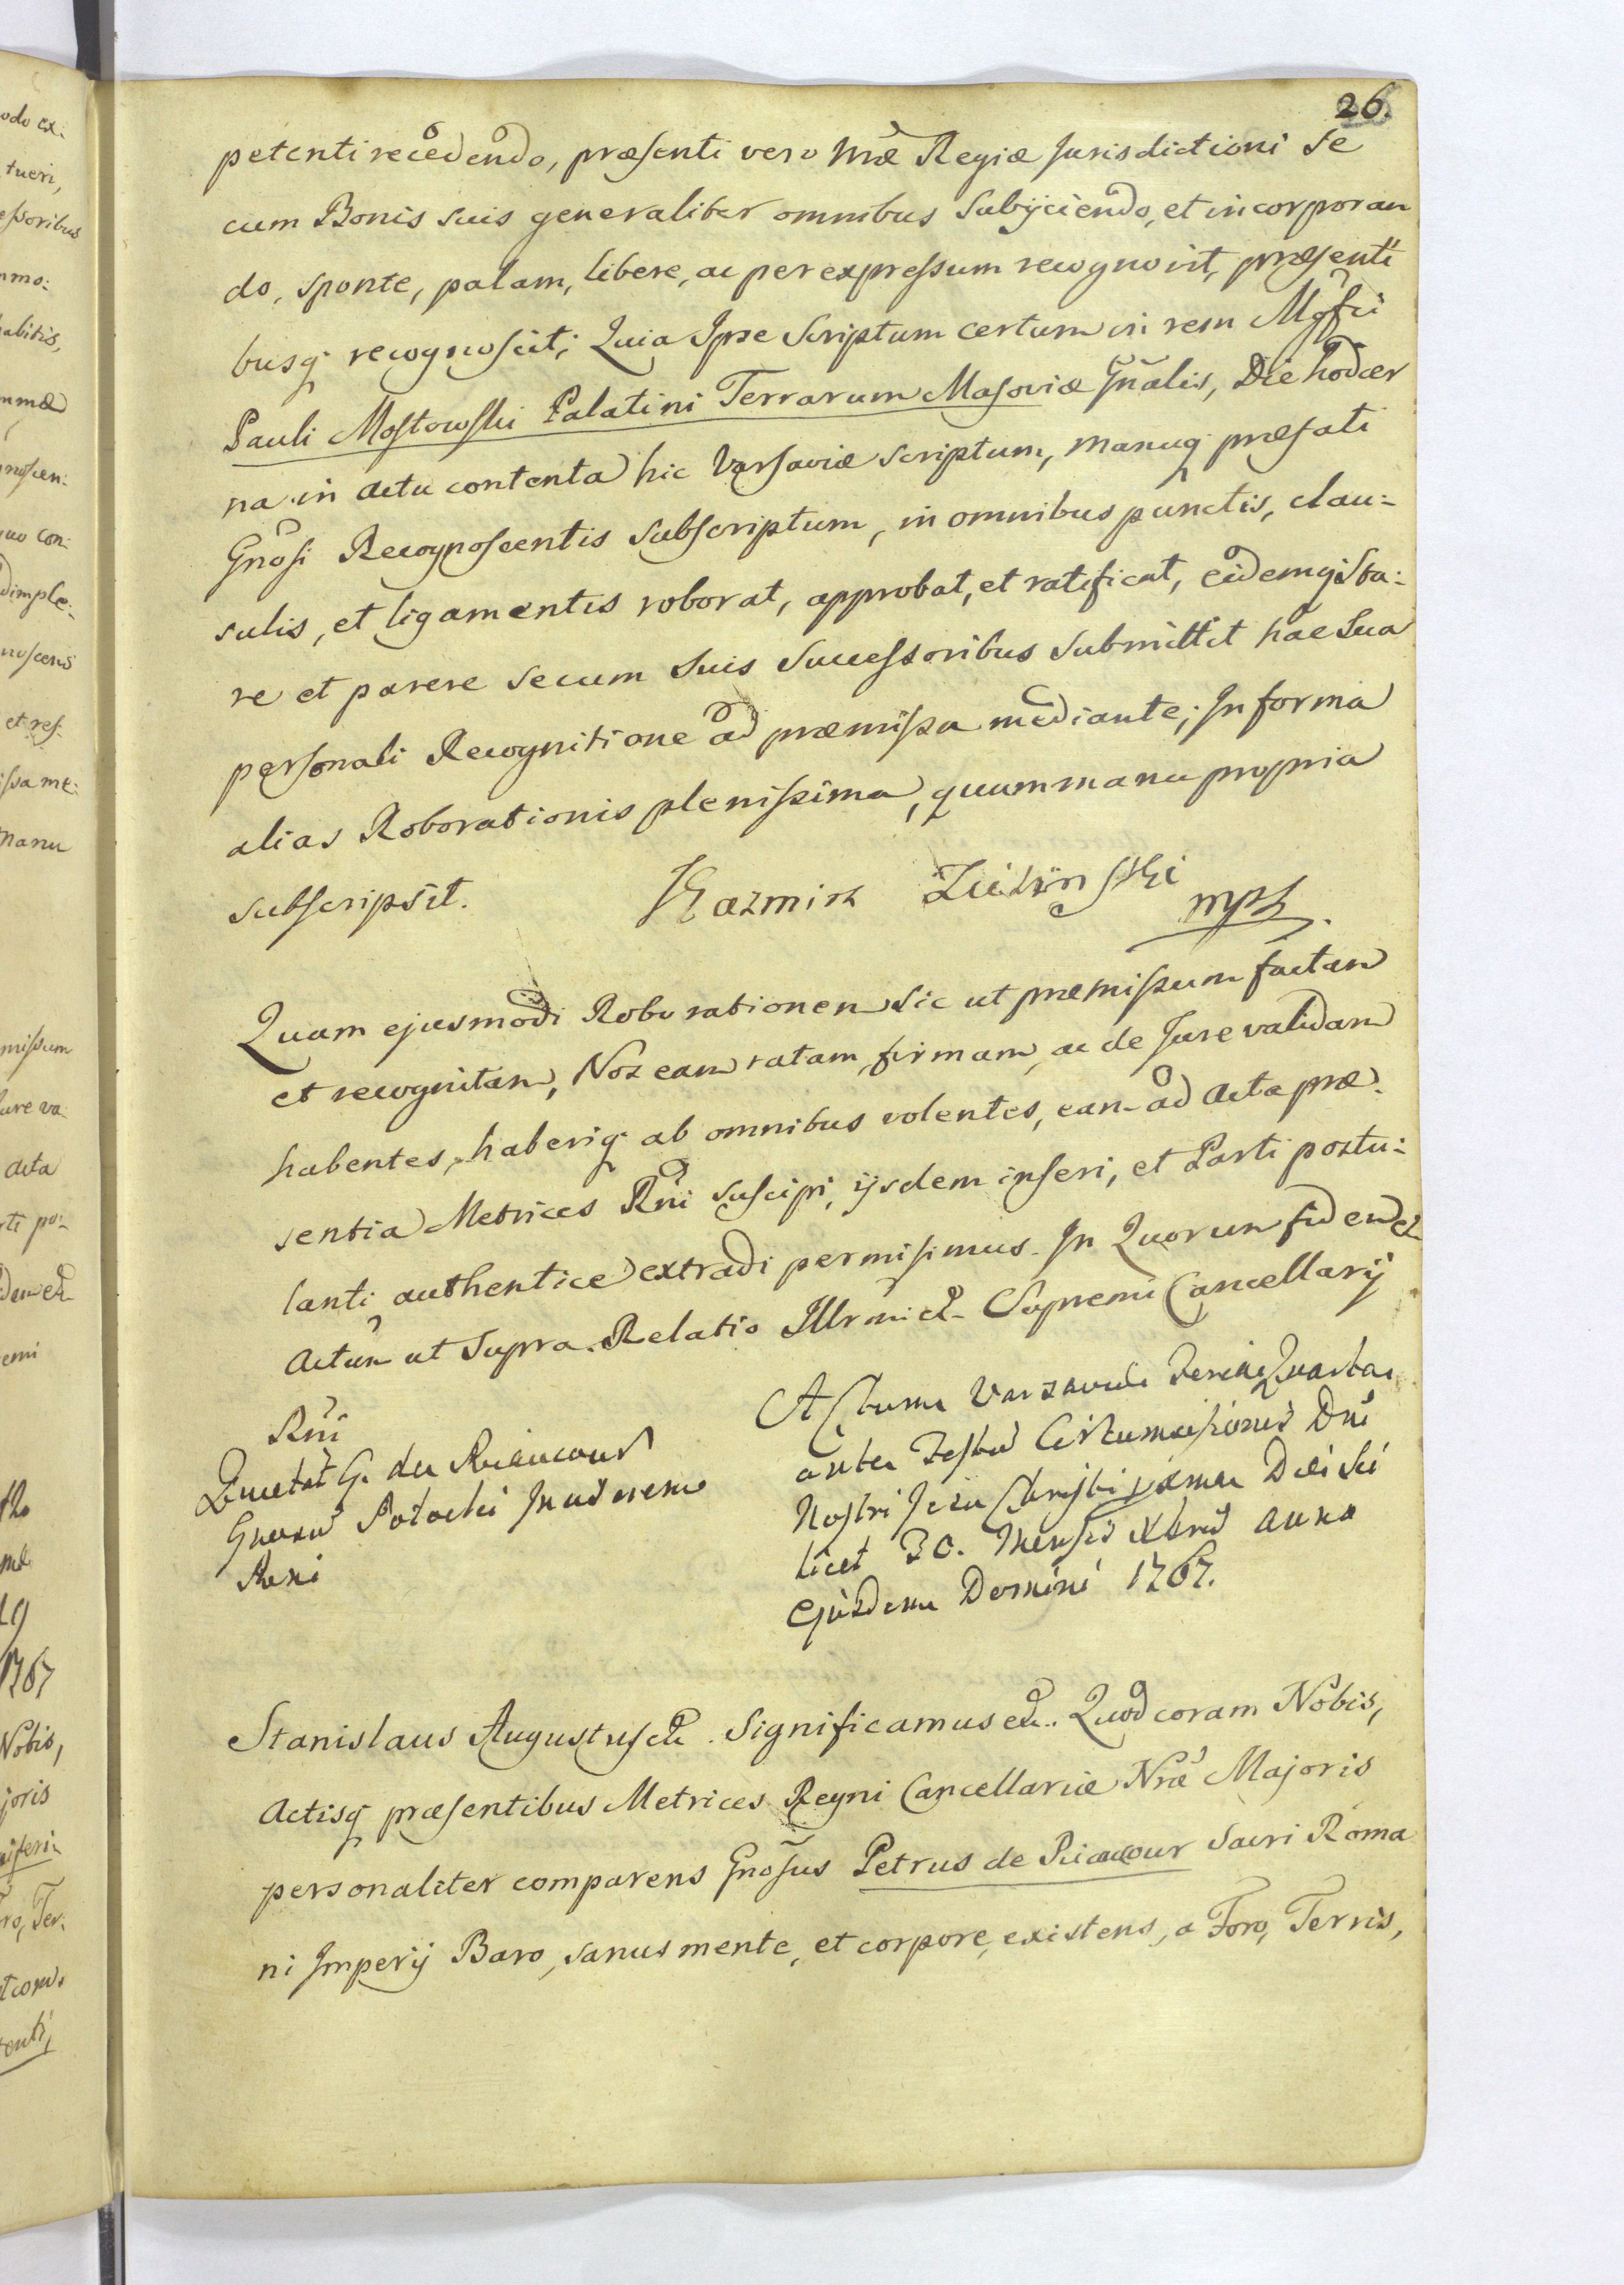 26.
petenti recedendo, præsenti vero Nræ Regiæ Jurisdictioni se
cum Bonis suis generaliter omnibus subijciendo, et incorporan
do, sponte, palam, libere, ac per expressum recognovit, præsenti
busq recognoscit; Quia Ipse Scriptum certum in rem Mgfci
Pauli Mostowski Palatini Terrarum Masoviæ Gnalis, Die hodier
na in actu contenta hic Varsaviæ scriptum, manuq præfati
Gnosi Recognoscentis subscriptum, in omnibus punctis, clau-
sulis, et ligamentis roborat, approbat, et ratificat, eidemq sta-
re et parere secum suis Successoribus submittit hac Sua
personali Recognitione ad præmissa mediante; In forma
alias Roborationis plenissima, quum manu propria
subscripsit.
Kazmirz
mps.
Quam ejusmodi Roborationem sic ut præmissum factam
et recognitam, Nos eam ratam, firmam, ac de Jure validam
habentes, haberiq ab omnibus volentes, eam ad Acta præ-
sentia Metrices Rni suscipi, ijsdem inseri, et Parti postu-
lanti authentice extradi permisimus. In Quorum fidem etc
Actum ut supra. Relatio Illrmi etc Supremi Cancellarij
Rni
G. de Riaucour
Potocki
Actum Varzaviae Feria Quarta
ante Festum Circumcisionis Dni
Nostri Jesu Christi Diei sci
licet 30. Mensis Xbris anno
ejusdem Domini 1767.
Stanislaus Augustus etc. Significamus etc. Quod coram Nobis,
Actisq præsentibus Metrices Regni Cancellariæ Nræ Majoris
personaliter comparens Gnosus Petrus de Riaucour Sacri Roma
ni Imperij Baro, sanus mente, et corpore existens, a Foro, Terris,